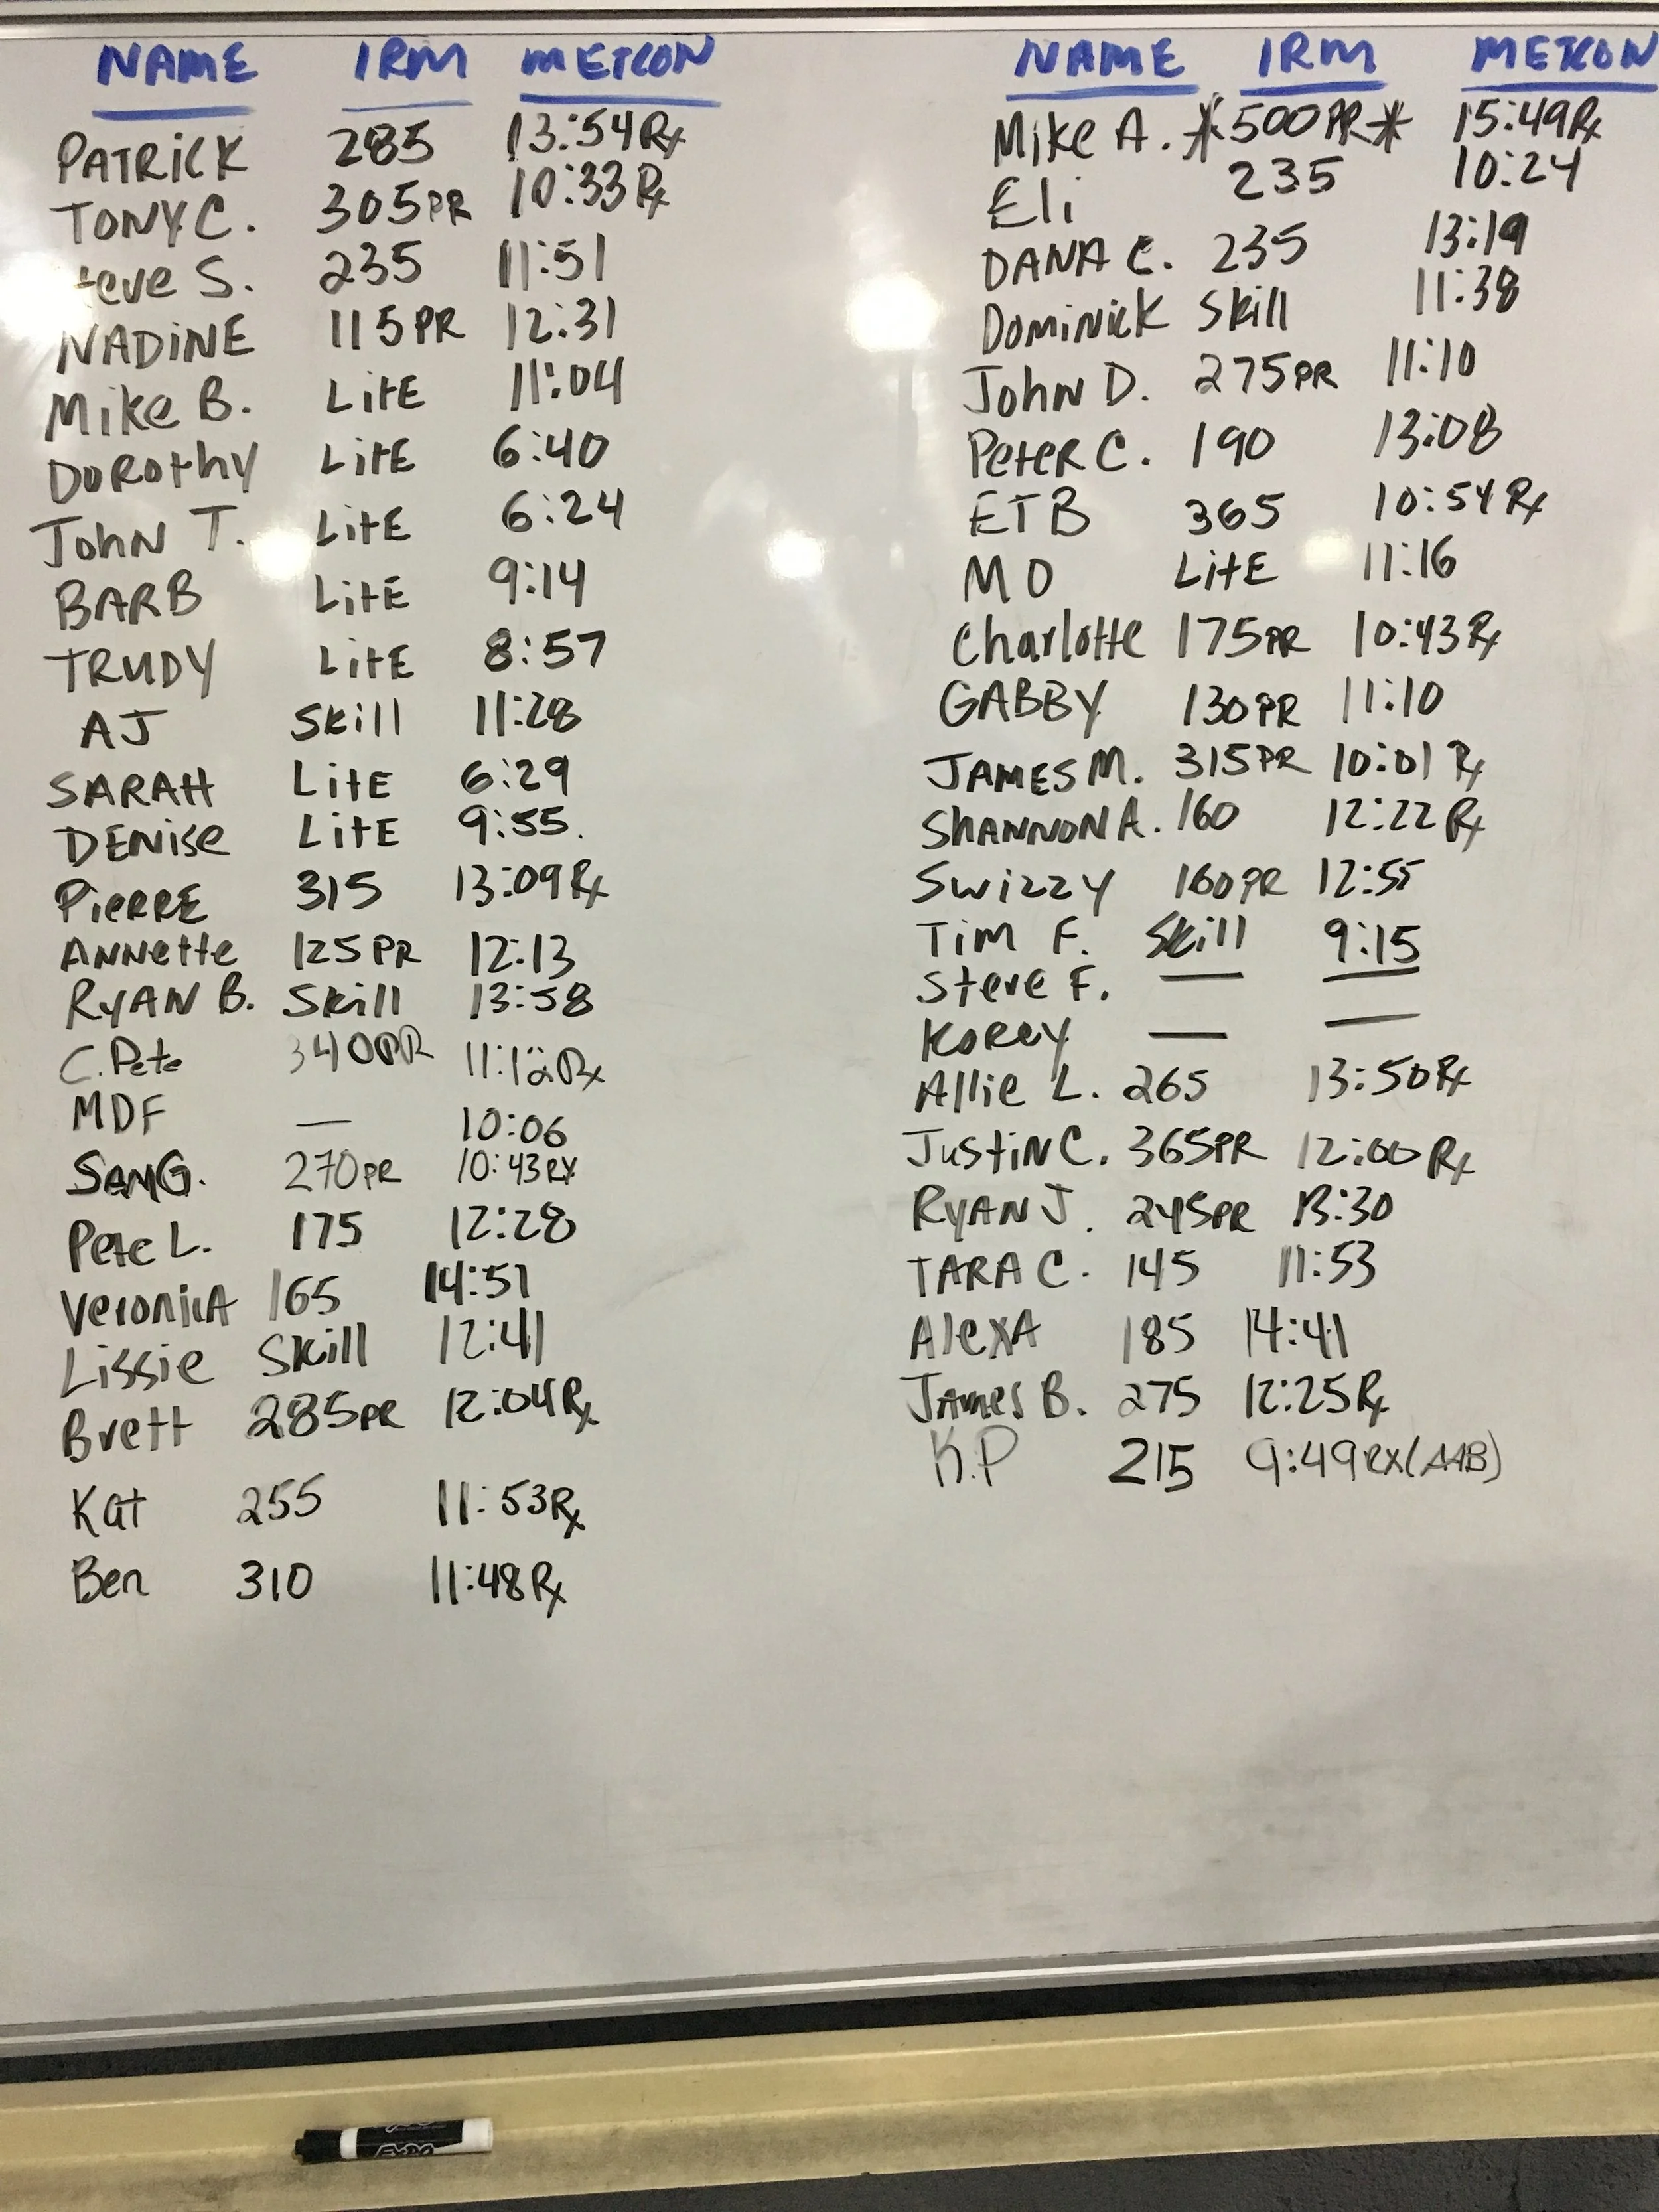 NAME 1RM METCON
PATRICK 285 13:54 Rx
TONY C. 305 PR 10:33 Rx
teve S. 235 11:51
NADINE 115 PR 12:31
Mike B. LitE 11:04
DOROthy LitE 6:40
John T. LitE 6:24
BARB LitE 9:14
TRUDY LitE 8:57
AJ Skill 11:28
SARAH LitE 6:29
DENise LitE 9:55.
PieRRE 315 13:09 Rx
ANNette 125 PR 12:13
RYAN B. Skill 13:58
C. Pete 340 PR Rx
MDF — 10:06
SAM G. 270 PR 10:43 RX
Pete L. 175 12:28
VeroniCA 165 14:51
Lissie Skill 12:41
Brett 285 PR 12:04 Rx
Kat 255 11:53 Rx
Ben 310 11:48 Rx
NAME 1RM METCON
Mike A. *500 PR* 15:49 Rx
Eli 235 10:24
DANA C. 235 13:19
DominicK Skill 11:38
John D. 275 PR 11:10
PeteR C. 190 13:08
ETB 365 10:54 Rx
MO LitE 11:16
Charlotte 175 PR 10:43 Rx
GABBY 130 PR 11:10
JAMES M. 315 PR 10:01 Rx
SHANNON A. 160 12:22 Rx
Swizzy 160 PR 12:55
Tim F. Skill 9:15
Steve F. — —
KoRey — —
Allie L. 265 13:50 Rx
JustiN C. 365 PR 12:00 Rx
RYAN J. 245 PR 13:30
TARA C. 145 11:53
AlexA 185 14:41
James B. 275 12:25 Rx
K.P 215 9:49 RX (AAB)
EXPO